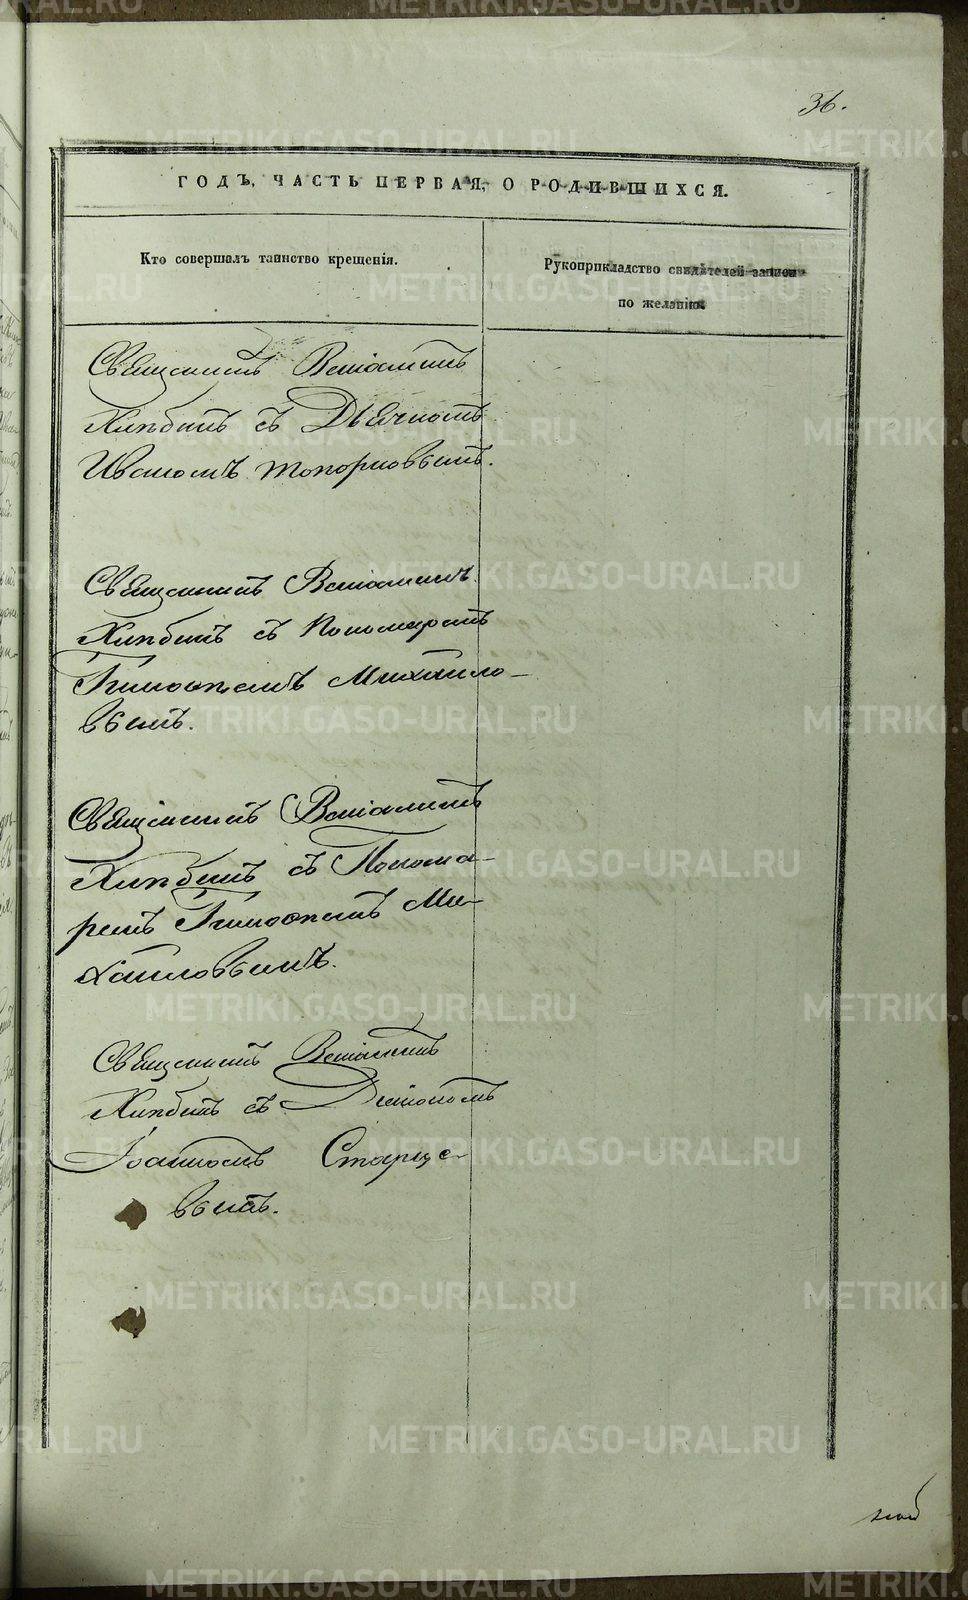 36.
ГОДЪ, ЧАСТЬ ПЕРВАЯ, О РОДИВШИХСЯ.
Кто совершалъ таинство крещенія.
Рукоприкладство свидѣтелей записи
по желанію.
Священникъ Веніаминъ
Хлѣбинъ съ Дьячкомъ
Иваномъ Топорковымъ.
Священникъ Веніаминъ
Хлѣбинъ съ Пономаремъ
Тимоѳеемъ Михайло-
вымъ.
Священникъ Веніаминъ
Хлѣбинъ съ Понома-
ремъ Тимоѳеемъ Ми-
хайловымъ.
Священникъ Веніаминъ
Хлѣбинъ съ Діакономъ
Іоанномъ Старце-
вымъ.
METRIKI.GASO-URAL.RU